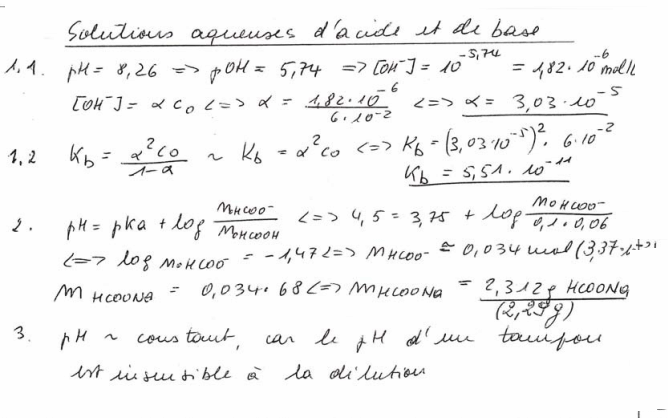 Solutions aqueuses d'acide et de base
1.1. pH = 8,26 => pOH = 5,74 => [OH⁻] = 10^-5,74 = 1,82·10^-6 mol/l
[OH⁻] = α c₀ <=> α = 1,82·10^-6 / 6·10^-2 <=> α = 3,03·10^-5
1.2 Kb = α²c₀ / 1-α ~ Kb = α²c₀ <=> Kb = (3,03·10^-5)²·6·10^-2
Kb = 5,51·10^-11
2. pH = pKa + log nHCOO⁻ / nHCOOH <=> 4,5 = 3,75 + log nHCOO⁻ / 0,1·0,06
<=> log nHCOO⁻ = -1,47 <=> nHCOO⁻ ≅ 0,034 mol
m HCOONa = 0,034·68 <=> mHCOONa = 2,312g HCOONa
(2,29g)
3. pH ~ constant, car le pH d'un tampon
est insensible à la dilution